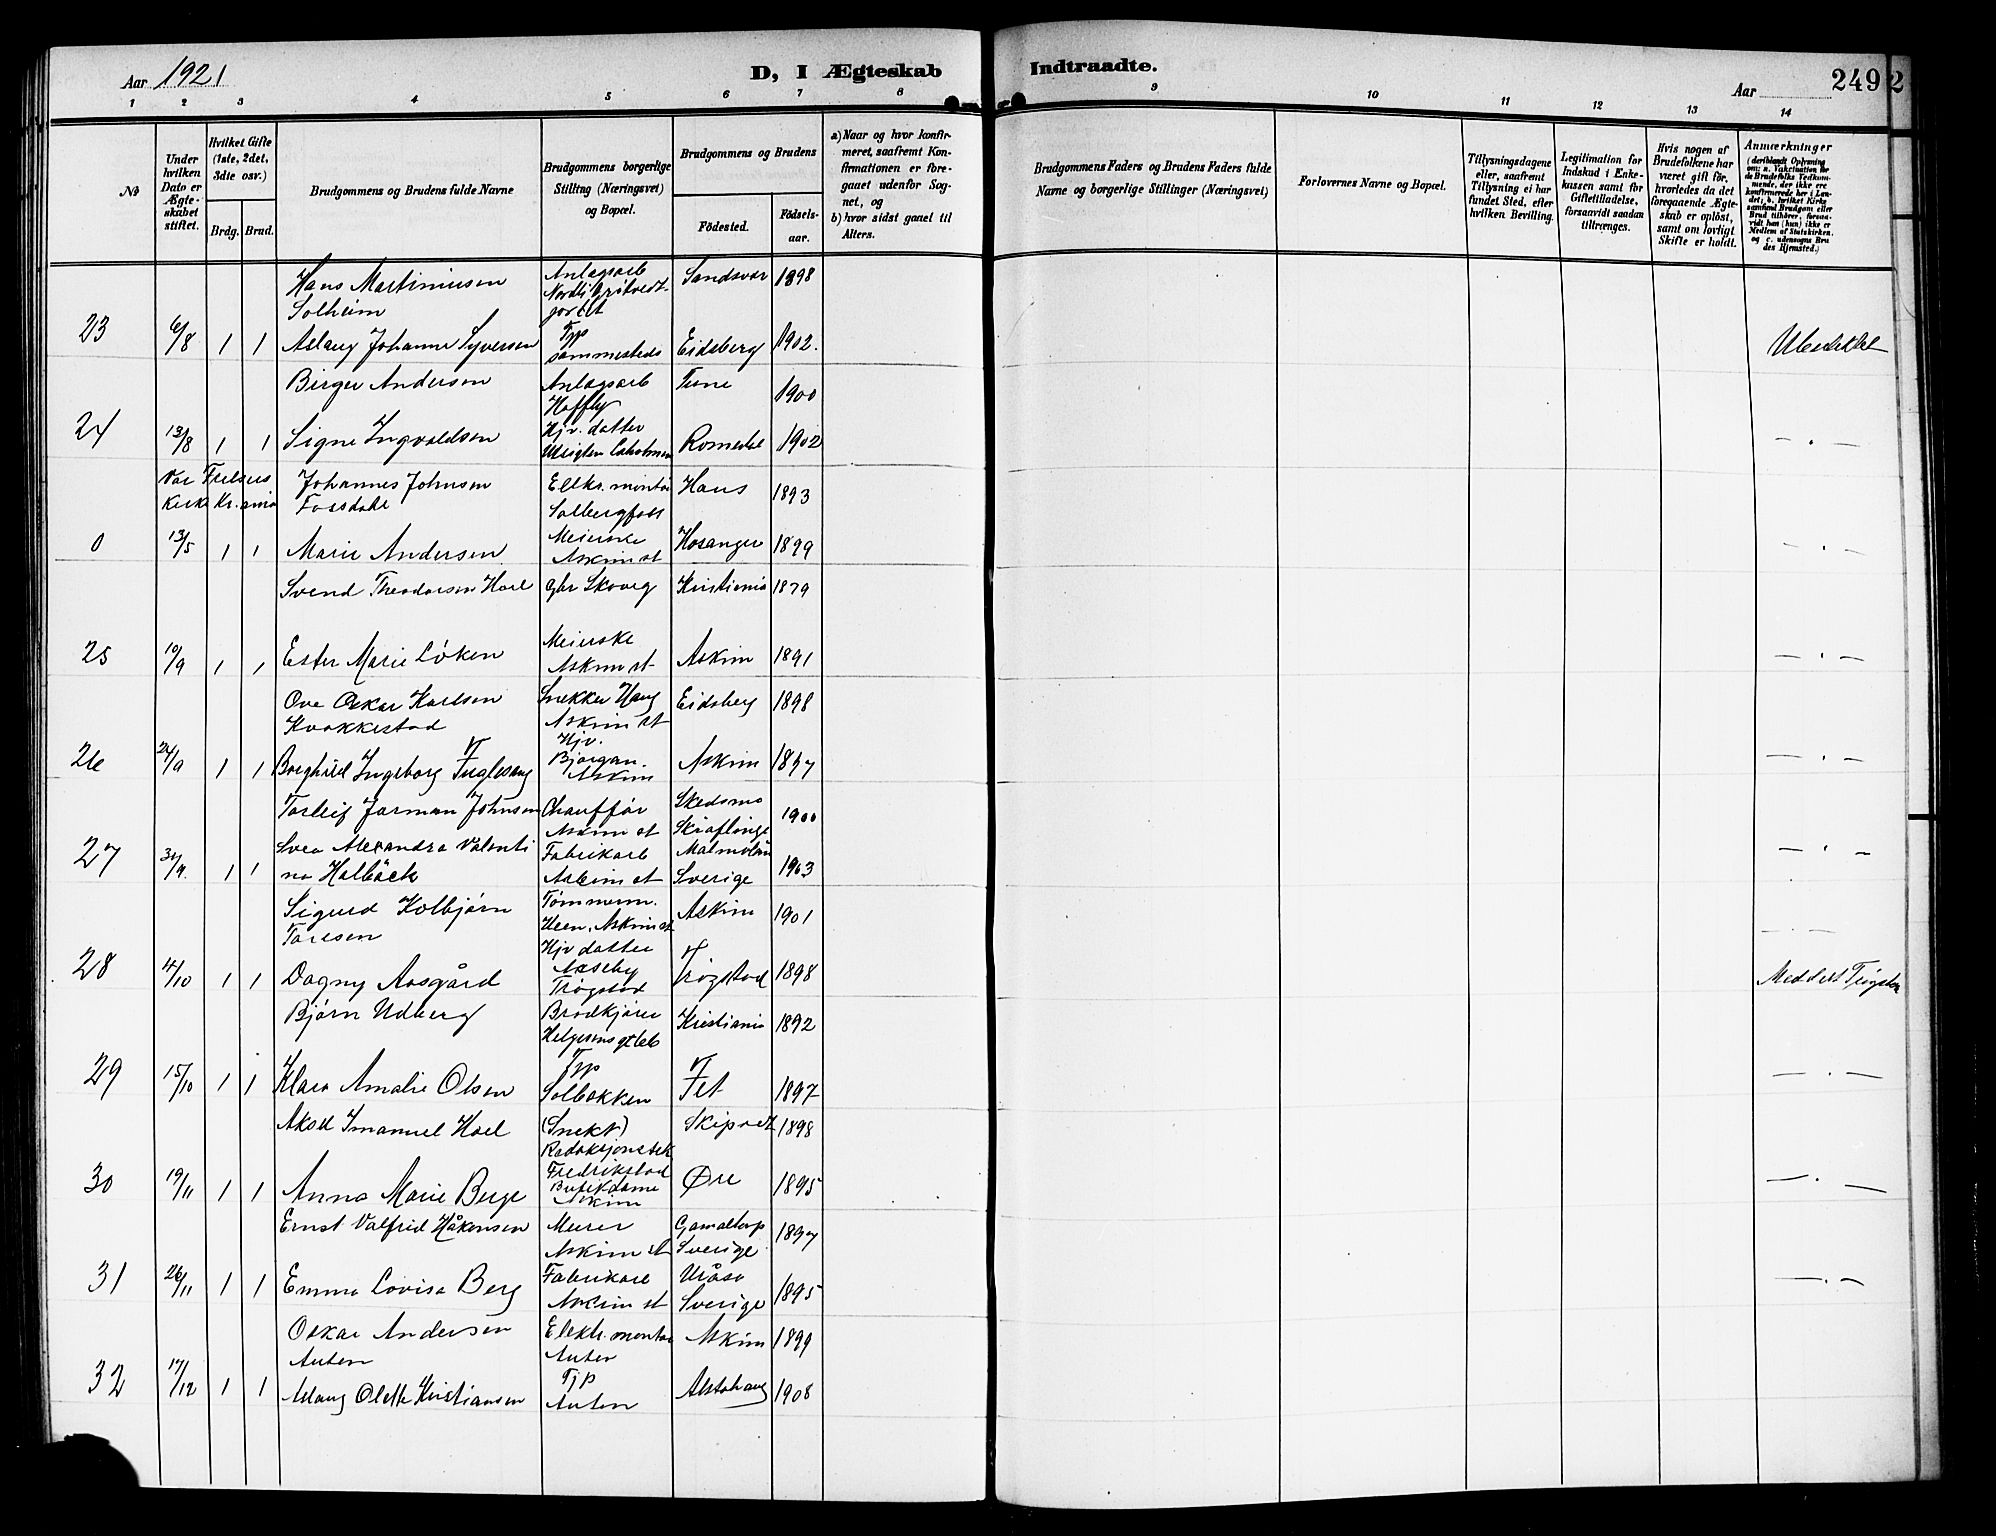 Aar 1921
D, I Ægteskab
Indtraadte.
Aar
249
2
1 2 3 4 5 6 7 8 9 10 11 12 13 14
No
Under hvilken Dato er Ægteskabet stiftet.
Hvilket Gifte (1ste, 2det, 3die osv.)
Brdg. Brud.
Brudgommens og Brudens fulde Navne
Brudgommens borgerlige Stilling (Næringsvei) og Bopæl.
Brudgommens og Brudens
Fødested.
Fødselsaar.
a) Naar og hvor konfirmeret, saafremt Konfirmationen er foregaaet udenfor Sognet, og
b) hvor sidst gaaet til Alters.
Brudgommens Faders og Brudens Faders fulde Navne og borgerlige Stillinger (Næringsvei)
Forlovernes Navne og Bopæl.
Tillysningsdagene eller, saafremt Tillysning ei har fundet Sted, efter hvilken Bevilling.
Legitimation for Indskud i Enkekassen samt for Giftetilladelse, forsaavidt saadan tiltrænges.
Hvis nogen af Brudefolkene har været gift før, hvorledes da det foregaaende Ægteskab er opløst, samt om lovligt Skifte er holdt.
Anmærkninger
(deriblandt Oplysning om: a. Vakcination for de Brudefolks Vedkommende, der ikke ere konfirmerede her i Landet; b. hvilket Kirkesamfund Brudgom eller Brud tilhører, forsaavidt han (hun) ikke er Medlem af Statskirken, og c. udensogns Brudes Hjemsted.)
Hans Martiniusen Anlægsarb Sandsvær 1898
Solheim
23 6/8 1 1 Aslaug Johanne Syversen Tjp sammesteds Eidsberg 1902.
Birger Andersen Anlægsarb Tune 1900
24 13/8 1 1 Signe Ingvaldsen Hjv. datter Romedal 1902 — . —
Vor Frelsers Johannes Johnsen Elektr. montør Haus 1893
Kirke Kr.ania Fossdale Solbergfoss
0 13/5 1 1 Marie Andersen Meierske Askim st Hosanger 1899 — . —
Svend Theodorsen Hoel Gbr Skoug Kristiania 1879
25 10/9 1 1 Ester Marie Løken Meierske Askim st Askim 1891 — . —
Ove Oskar Karlsen Snekker Haug Eidsberg 1898
Kvakkestad Askim st
26 24/9 1 1 Borghild Ingeborg Fuglesang Hjv. Bjørgan. Askim Askim 1897 — . —
Torleif Jarman Johnsen Chauffør Skedsmo 1900
Askim st
27 1 1 Svea Alexandra Valentina Holbäck Fabrikarb Askim st Malmölän Sverige 1903 — . —
Sigurd Kolbjørn Tømmerm. Askim 1901
Toresen Askim st — . —
28 4/10 1 1 Dagny Aasgård Hjv datter Aaseby Trøgstad Trøgstad 1898
Bjørn Udberg Brødkjører Kristiania 1892
29 15/10 1 1 Klara Amalie Olsen Tjp Solbakken Fet 1897 — . —
Aksel Imanuel Hoel (Snekk) Skiptvet 1898
Redaksjonssek Fredrikstad
30 19/11 1 1 Anna Marie Berge Butikdame Askim Øre 1895 — . —
Ernst Valfrid Håkensen Murer Gamaltorp 1897
Askim st Sverige.
31 26/11 1 1 Emma Lovisa Berg Fabrikarb Askim st Uråsa Sverige 1895 — . —
Oskar Andersen Elektr. montør Askim 1899
Auten Auten
32 17/12 1 1 Aslaug Olette Kristiansen Tjp Auten Alstahaug 1908